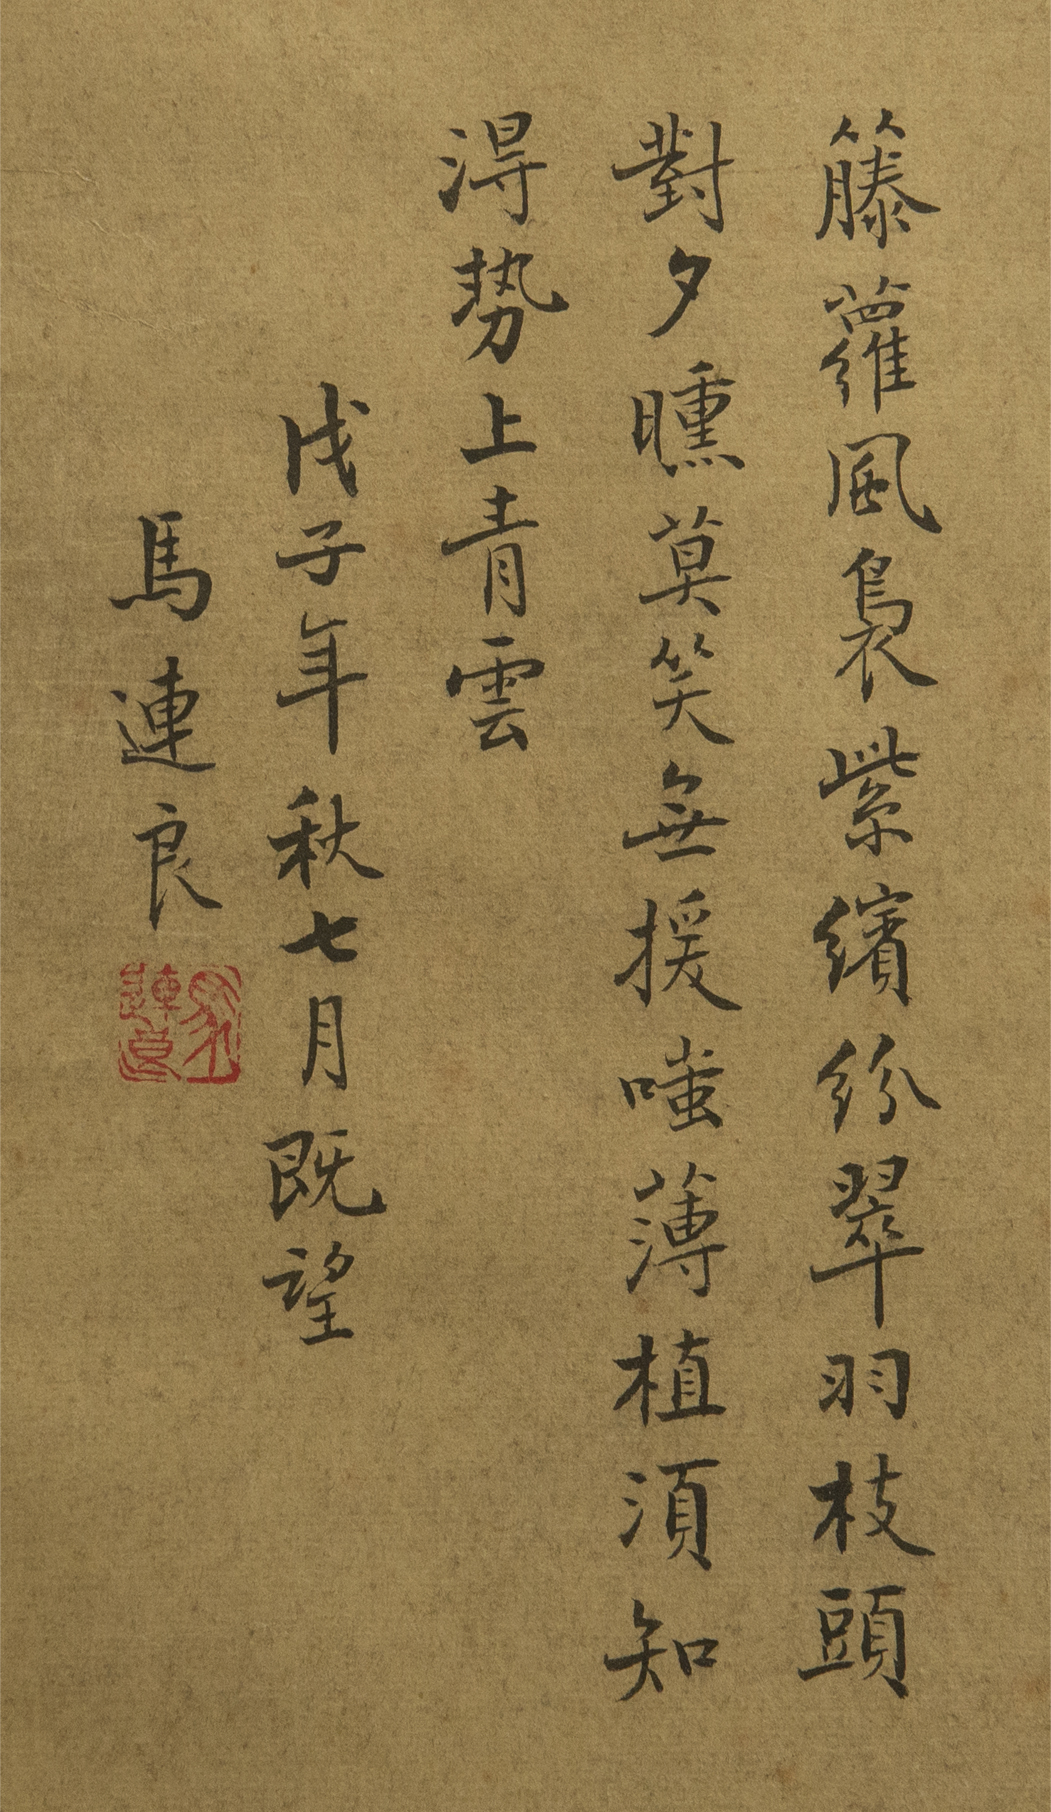 籐蘿風裊紫繽紛翠羽枝頭
對夕曛莫笑無援嗤薄植須知
得勢上青雲
戊子年秋七月既望
馬連良
馬連良